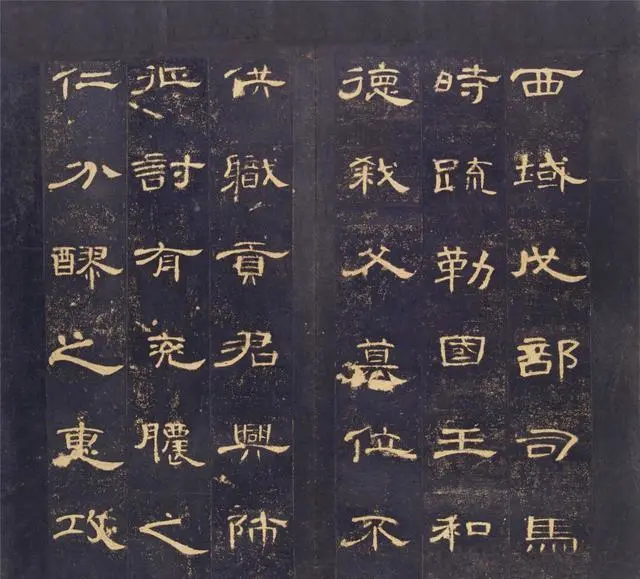 西域戊部司馬
時疏勒國王和
德弑父篡位不
供職貢君興師
征討有兗膿之
仁分醪之惠攻